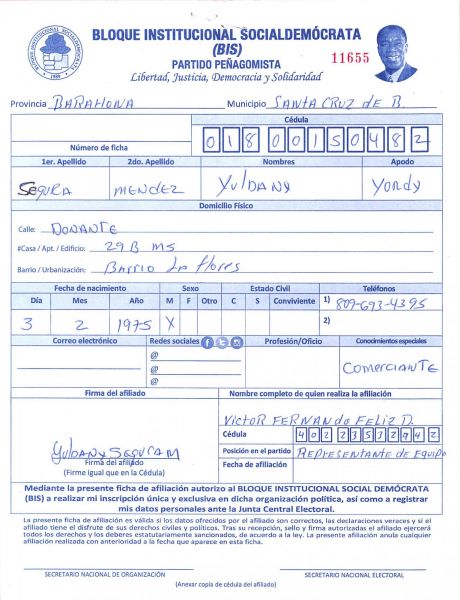 BLOQUE INSTITUCIONAL SOCIALDEMÓCRATA
(BIS)
PARTIDO PEÑAGOMISTA
11655
Libertad, Justicia, Democracia y Solidaridad
Provincia BARAHONA Municipio SANTA CRUZ de B.
Cédula
Número de ficha 01800150482
1er. Apellido 2do. Apellido Nombres Apodo
SEGURA MENDEZ YULDANY YORDY
Domicilio Físico
Calle: DONANTE
#Casa / Apt. / Edificio: 29 B MS
Barrio / Urbanización: BARRIO LA Flores
Fecha de nacimiento Sexo Estado Civil Teléfonos
Día Mes Año M F Otro C S Conviviente 1) 809-693-4395
3 2 1975 X 2)
Correo electrónico Redes sociales Profesión/Oficio Conocimientos especiales
@
@
@
COMERCIANTE
Firma del afiliado Nombre completo de quien realiza la afiliación
VICTOR FERNANDO FELIZ D.
Cédula 40223532942
YULDANY SEGURA M
Posición en el partido REPRESENTANTE DE EQUIPO
Firma del afiliado
(Firme igual que en la Cédula)
Fecha de afiliación
Mediante la presente ficha de afiliación autorizo al BLOQUE INSTITUCIONAL SOCIAL DEMÓCRATA
(BIS) a realizar mi inscripción única y exclusiva en dicha organización política, así como a registrar
mis datos personales ante la Junta Central Electoral.
La presente ficha de afiliación es válida si los datos ofrecidos por el afiliado son correctos, las declaraciones veraces y si el
afiliado tiene el disfrute de sus derechos civiles y políticos. Tras su recepción, sello y firma autorizadas el afiliado ejercerá
todos los derechos y los deberes estatutariamente sancionados, de acuerdo a la ley. La presente afiliación anula cualquier
afiliación realizada con anterioridad a la fecha que aparece en esta ficha.
SECRETARIO NACIONAL DE ORGANIZACIÓN SECRETARIO NACIONAL ELECTORAL
(Anexar copia de cédula del afiliado)